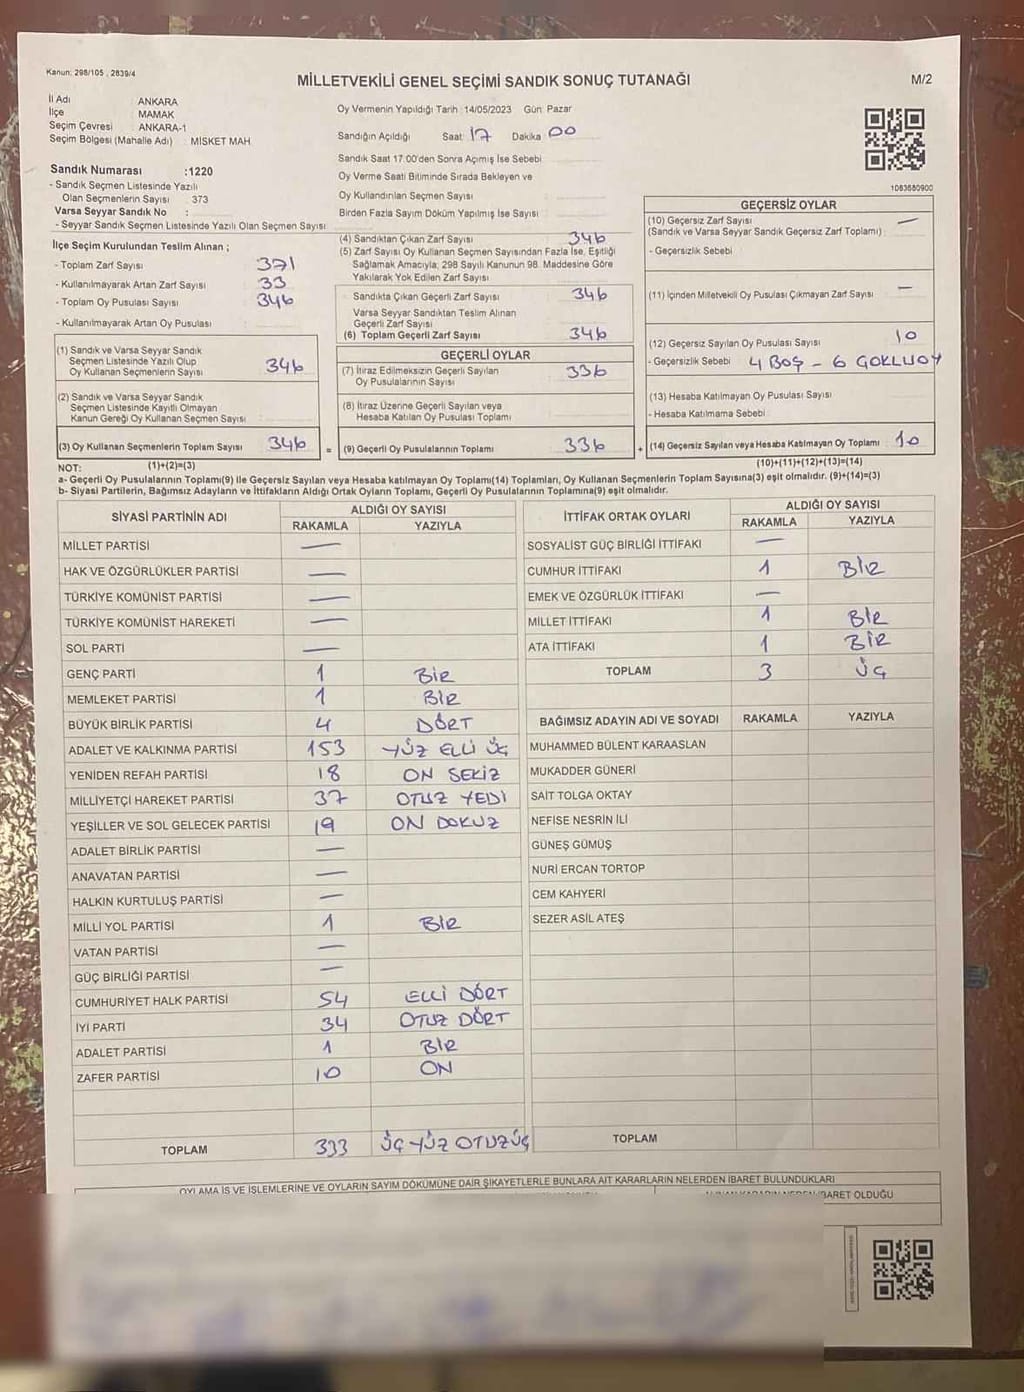 Kanun: 298/105 , 2839/4
MİLLETVEKİLİ GENEL SEÇİMİ SANDIK SONUÇ TUTANAĞI
M/2
İl Adı : ANKARA
İlçe : MAMAK
Seçim Çevresi : ANKARA-1
Seçim Bölgesi (Mahalle Adı) : MİSKET MAH
Sandık Numarası :1220
- Sandık Seçmen Listesinde Yazılı
Olan Seçmenlerin Sayısı : 373
Varsa Seyyar Sandık No :
- Seyyar Sandık Seçmen Listesinde Yazılı Olan Seçmen Sayısı
İlçe Seçim Kurulundan Teslim Alınan ;
- Toplam Zarf Sayısı 371
- Kullanılmayarak Artan Zarf Sayısı 33
- Toplam Oy Pusulası Sayısı 346
- Kullanılmayarak Artan Oy Pusulası
(1) Sandık ve Varsa Seyyar Sandık
Seçmen Listesinde Yazılı Olup
Oy Kullanan Seçmenlerin Sayısı 346
(2) Sandık ve Varsa Seyyar Sandık
Seçmen Listesinde Kayıtlı Olmayan
Kanun Gereği Oy Kullanan Seçmen Sayısı
(3) Oy Kullanan Seçmenlerin Toplam Sayısı 346
Oy Vermenin Yapıldığı Tarih :14/05/2023 Gün: Pazar
Sandığın Açıldığı Saat: 17 Dakika 00
Sandık Saat 17:00'den Sonra Açımış İse Sebebi
Oy Verme Saati Bitiminde Sırada Bekleyen ve
Oy Kullandırılan Seçmen Sayısı
Birden Fazla Sayım Döküm Yapılmış İse Sayısı
(4) Sandıktan Çıkan Zarf Sayısı 346
(5) Zarf Sayısı Oy Kullanan Seçmen Sayısından Fazla İse, Eşitliği
Sağlamak Amacıyla, 298 Sayılı Kanunun 98. Maddesine Göre
Yakılarak Yok Edilen Zarf Sayısı
Sandıkta Çıkan Geçerli Zarf Sayısı 346
Varsa Seyyar Sandıktan Teslim Alınan
Geçerli Zarf Sayısı
(6) Toplam Geçerli Zarf Sayısı 346
GEÇERLİ OYLAR
(7) İtiraz Edilmeksizin Geçerli Sayılan
Oy Pusulalarının Sayısı 336
(8) İtiraz Üzerine Geçerli Sayılan veya
Hesaba Katılan Oy Pusulası Toplamı
= (9) Geçerli Oy Pusulalarının Toplamı 336
1083680900
GEÇERSİZ OYLAR
(10) Geçersiz Zarf Sayısı —
(Sandık ve Varsa Seyyar Sandık Geçersiz Zarf Toplamı)
- Geçersizlik Sebebi
(11) İçinden Milletvekili Oy Pusulası Çıkmayan Zarf Sayısı —
(12) Geçersiz Sayılan Oy Pusulası Sayısı 10
- Geçersizlik Sebebi 4 BOŞ - 6 GOKLUOY
(13) Hesaba Katılmayan Oy Pusulası Sayısı
- Hesaba Katılmama Sebebi
+ (14) Geçersiz Sayılan veya Hesaba Katılmayan Oy Toplamı 10
NOT: (1)+(2)=(3) (10)+(11)+(12)+(13)=(14)
a- Geçerli Oy Pusulalarının Toplamı(9) ile Geçersiz Sayılan veya Hesaba katılmayan Oy Toplamı(14) Toplamları, Oy Kullanan Seçmenlerin Toplam Sayısına(3) eşit olmalıdır. (9)+(14)=(3)
b- Siyasi Partilerin, Bağımsız Adayların ve İttifakların Aldığı Ortak Oyların Toplamı, Geçerli Oy Pusulalarının Toplamına(9) eşit olmalıdır.
SİYASİ PARTİNİN ADI ALDIĞI OY SAYISI
RAKAMLA YAZIYLA
MİLLET PARTİSİ —
HAK VE ÖZGÜRLÜKLER PARTİSİ —
TÜRKİYE KOMÜNİST PARTİSİ —
TÜRKİYE KOMÜNİST HAREKETİ —
SOL PARTİ —
GENÇ PARTİ 1 BİR
MEMLEKET PARTİSİ 1 BİR
BÜYÜK BİRLİK PARTİSİ 4 DÖRT
ADALET VE KALKINMA PARTİSİ 153 YÜZ ELLİ ÜÇ
YENİDEN REFAH PARTİSİ 18 ON SEKİZ
MİLLİYETÇİ HAREKET PARTİSİ 37 OTUZ YEDİ
YEŞİLLER VE SOL GELECEK PARTİSİ 19 ON DOKUZ
ADALET BİRLİK PARTİSİ —
ANAVATAN PARTİSİ —
HALKIN KURTULUŞ PARTİSİ —
MİLLİ YOL PARTİSİ 1 BİR
VATAN PARTİSİ —
GÜÇ BİRLİĞİ PARTİSİ —
CUMHURİYET HALK PARTİSİ 54 ELLİ DÖRT
İYİ PARTİ 34 OTUZ DÖRT
ADALET PARTİSİ 1 BİR
ZAFER PARTİSİ 10 ON
TOPLAM 333 ÜÇ YÜZ OTUZÜÇ
İTTİFAK ORTAK OYLARI ALDIĞI OY SAYISI
RAKAMLA YAZIYLA
SOSYALİST GÜÇ BİRLİĞİ İTTİFAKI —
CUMHUR İTTİFAKI 1 BİR
EMEK VE ÖZGÜRLÜK İTTİFAKI —
MİLLET İTTİFAKI 1 BİR
ATA İTTİFAKI 1 BİR
TOPLAM 3 ÜÇ
BAĞIMSIZ ADAYIN ADI VE SOYADI RAKAMLA YAZIYLA
MUHAMMED BÜLENT KARAASLAN
MUKADDER GÜNERİ
SAİT TOLGA OKTAY
NEFİSE NESRİN İLİ
GÜNEŞ GÜMÜŞ
NURİ ERCAN TORTOP
CEM KAHYERİ
SEZER ASİL ATEŞ
TOPLAM
OYLAMA İŞ VE İŞLEMLERİNE VE OYLARIN SAYIM DÖKÜMÜNE DAİR ŞİKAYETLERLE BUNLARA AİT KARARLARIN NELERDEN İBARET BULUNDUKLARI
İBARET OLDUĞU